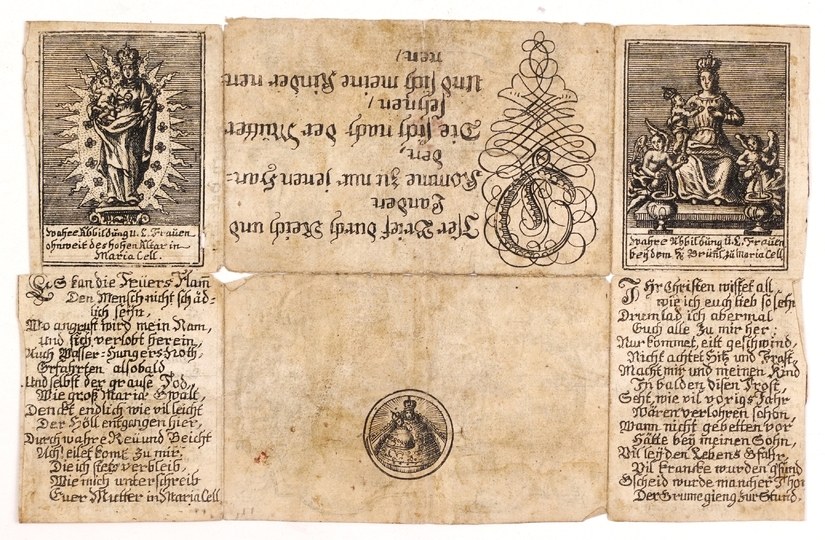 Wahre Abbildung U. L. Frauen
ohnweit des hohen Altar in
Maria Cell.
DIser Brief durch Reich und
Landen
Komme zu nur jenen Han-
den,
Die sich nach der Mutter
sehnen /
Und sich meine Kinder nen-
nen /
Wahre Abbildung U. L. Frauen
bey dem H. Brünl. zu Maria Cell
ES kan die Feuers Flam
Den Mensch nicht schäd-
lich seyn,
Wo angruft wird mein Nam,
Und sich verlobt herein,
Auch Wasser= Hungers Noth,
Erfahrten alsobald
Und selbst der grause Tod,
Wie groß Maria Gwalt,
Denckt endlich wie vil leicht
Der Höll entgangen hier,
Durch wahre Reü und Beicht
Ach! eilet komt zu mir.
Die ich stets verbleib,
Wie mich unterschreib
Euer Mutter in Maria Cell
IHr Christen wisset all
wie ich euch lieb so sehr
Drum lad ich abermal
Euch alle zu mir her;
Nur kommet, eilt geschwind,
Nicht achtet Hitz und Frost,
Macht mir und meinen Kind
Fein balden disen Trost,
Seht, wie vil vorigs Jahr
Wären verlohren schon,
Wann nicht gebetten vor
Hätte bey meinen Sohn,
Vil leyden Lebens Gfahr,
Vil krancke wurden gsund
Gscheid wurde mancher Thor
Der Grume gieng zur Stund.